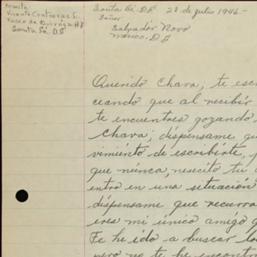 Vicente Contreras S.
Vasco de Quiroga #8
Santa Fé. D.F.
Santa Fé D.F. 28 de julio 1946-
Señor
Salvador Novo
México. D.F
Querido Chava, te esc
ceando que al recibir
te encuentres gozando
Chava; dispensame qu
vimiento de escribirte, p
que nunca, nescito tu
entro en una situación
dispensame que recurra
eres mi único amigo q
Te he ido a buscar
pero no te he encontr